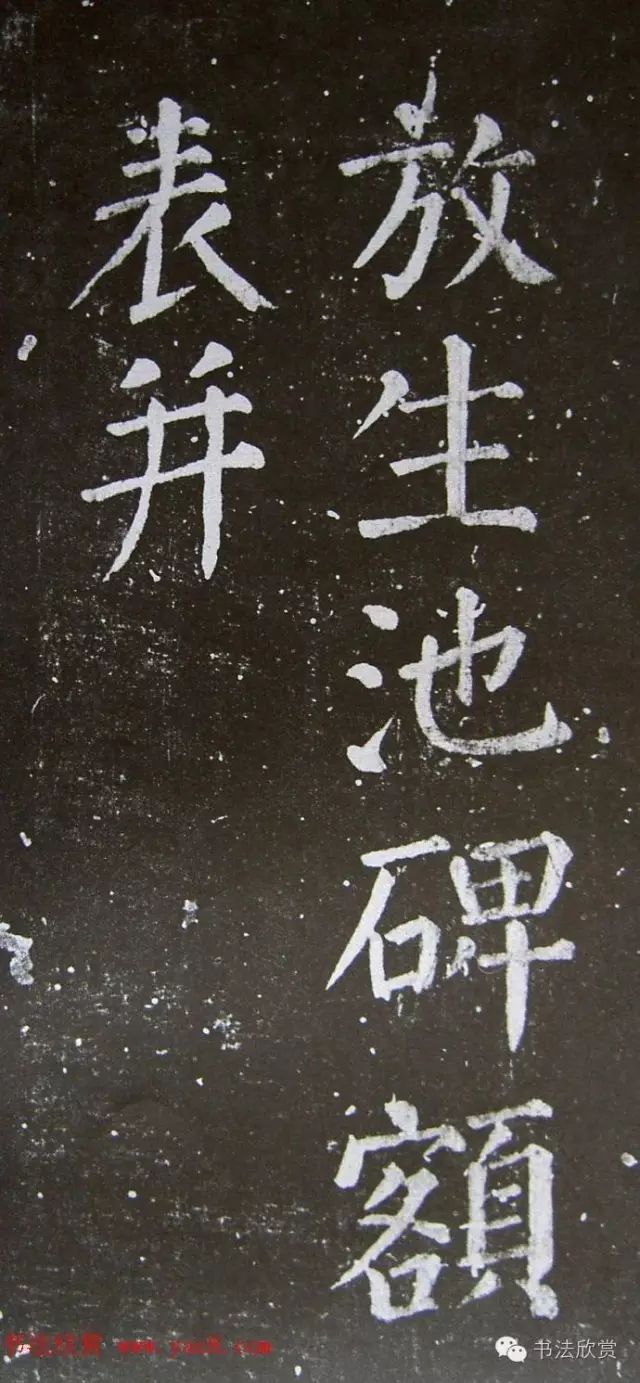 放生池碑額
表并
书法欣赏 www.yac8.com
书法欣赏